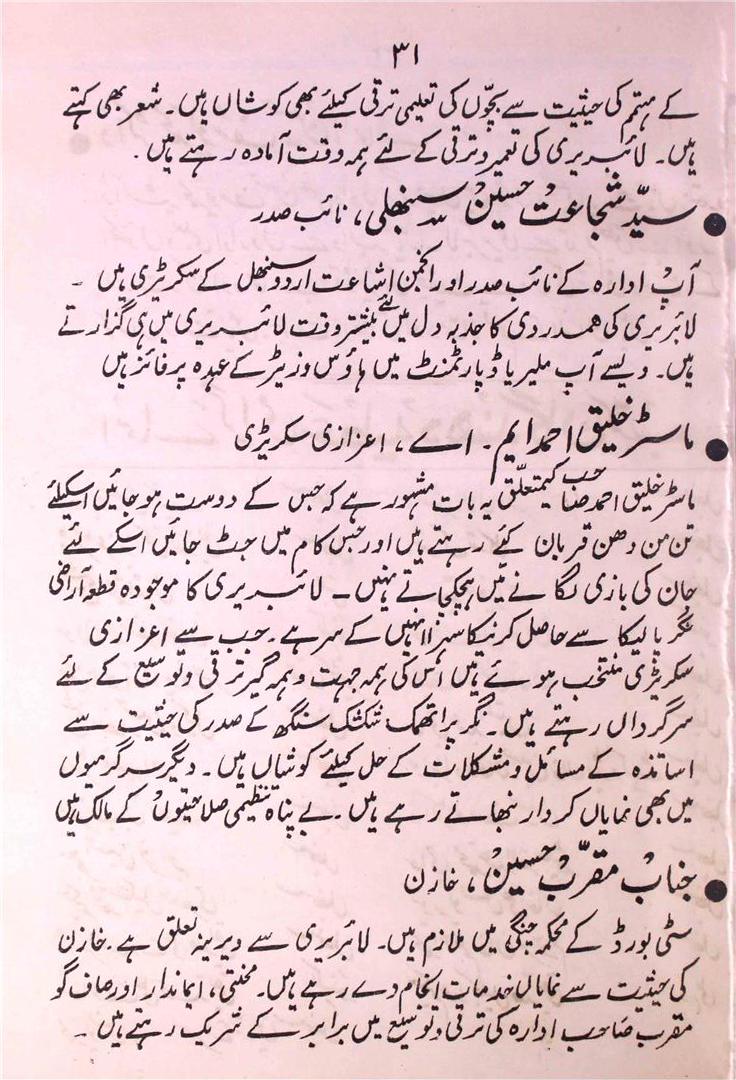 ۳۱
کے مہتمم کی حیثیت سے بچّوں کی تعلیمی ترقی کیلئے بھی کوشاں ہیں۔ شعر بھی کہتے
ہیں۔ لائبریری کی تعمیر و ترقی کے لئے ہمہ وقت آمادہ رہتے ہیں۔
● سیّد شجاعت حسین سنبھلی، نائب صدر
آپ ادارہ کے نائب صدر اور انجمن اشاعت اردو سنبھل کے سکریٹری ہیں ۔
لائبریری کی ہمدردی کا جذبہ دل میں لئے بیشتر وقت لائبریری میں ہی گزارتے
ہیں۔ ویسے آپ ملیریا ڈپارٹمنٹ میں ہاؤس وزیٹر کے عہدہ پر فائز ہیں
● ماسٹر خلیق احمد ایم۔ اے، اعزازی سکریٹری
ماسٹر خلیق احمد صاحب کیمتعلّق یہ بات مشہور ہے کہ جس کے دوست ہو جائیں اسکیلئے
تن من دھن قربان کئے رہتے ہیں اور جس کام میں جٹ جائیں اسکے لئے
جان کی بازی لگانے میں ہچکچاتے نہیں ۔ لائبریری کا موجودہ قطعہ آراضی
نگر پالیکا سے حاصل کرنیکا سہرا انہیں کے سر ہے۔ جب سے اعزازی
سکریٹری منتخب ہوئے ہیں اس کی ہمہ جہت و ہمہ گیر ترقی و توسیع کے لئے
سرگرداں رہتے ہیں۔ نگر پراتھمک شکشک سنگھ کے صدر کی حیثیت سے
اساتذہ کے مسائل و مشکلات کے حل کیلئے کوشاں ہیں۔ دیگر سرگرمیوں
میں بھی نمایاں کردار نبھاتے رہے ہیں۔ بے پناہ تنظیمی صلاحیتوں کے مالک ہیں
● جناب مقرّب حسین، خازن
سٹی بورڈ کے محکمہ چنگی میں ملازم ہیں۔ لائبریری سے دیرینہ تعلق ہے۔ خازن
کی حیثیت سے نمایاں خدمات انجام دے رہے ہیں۔ محنتی، ایماندار اور صاف گو
مقرب صاحب ادارہ کی ترقی و توسیع میں برابر کے شریک رہتے ہیں ۔